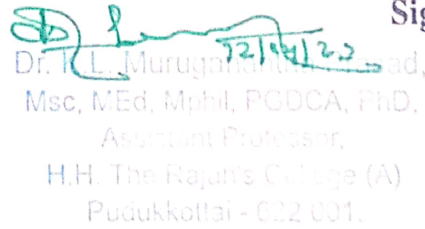 Sig
12/04/22
Dr. K.L. Muruga
Msc, MEd, Mphil, PGDCA, PhD,
Assistant Professor,
H.H. The Rajah's College (A)
Pudukkottai - 622 001.